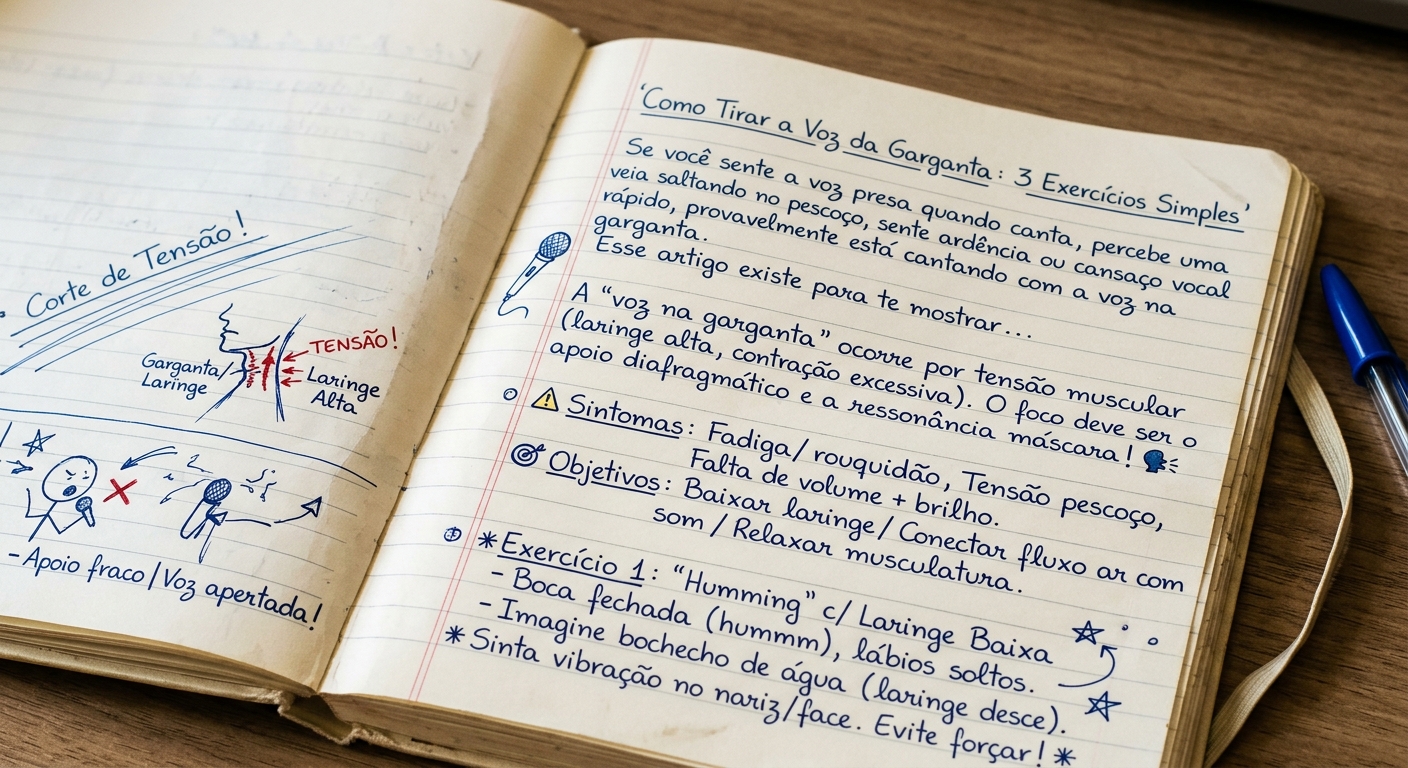 Corte de Tensão!
TENSÃO!
Garganta/
Laringe
Laringe
Alta
-Apoio fraco/Voz apertada!
'Como Tirar a Voz da Garganta: 3 Exercícios Simples'
Se você sente a voz presa quando canta, percebe uma
veia saltando no pescoço, sente ardência ou cansaço vocal
rápido, provavelmente está cantando com a voz na
garganta.
Esse artigo existe para te mostrar...
A "voz na garganta" ocorre por tensão muscular
(laringe alta, contração excessiva). O foco deve ser o
apoio diafragmático e a ressonância máscara!
Sintomas: Fadiga/rouquidão, Tensão pescoço,
Falta de volume + brilho.
Objetivos: Baixar laringe/Conectar fluxo ar com
som/Relaxar musculatura.
*Exercício 1: "Humming" c/ Laringe Baixa
- Boca fechada (hummm), lábios soltos.
- Imagine bochecho de água (laringe desce).
*Sinta vibração no nariz/face. Evite forçar! *